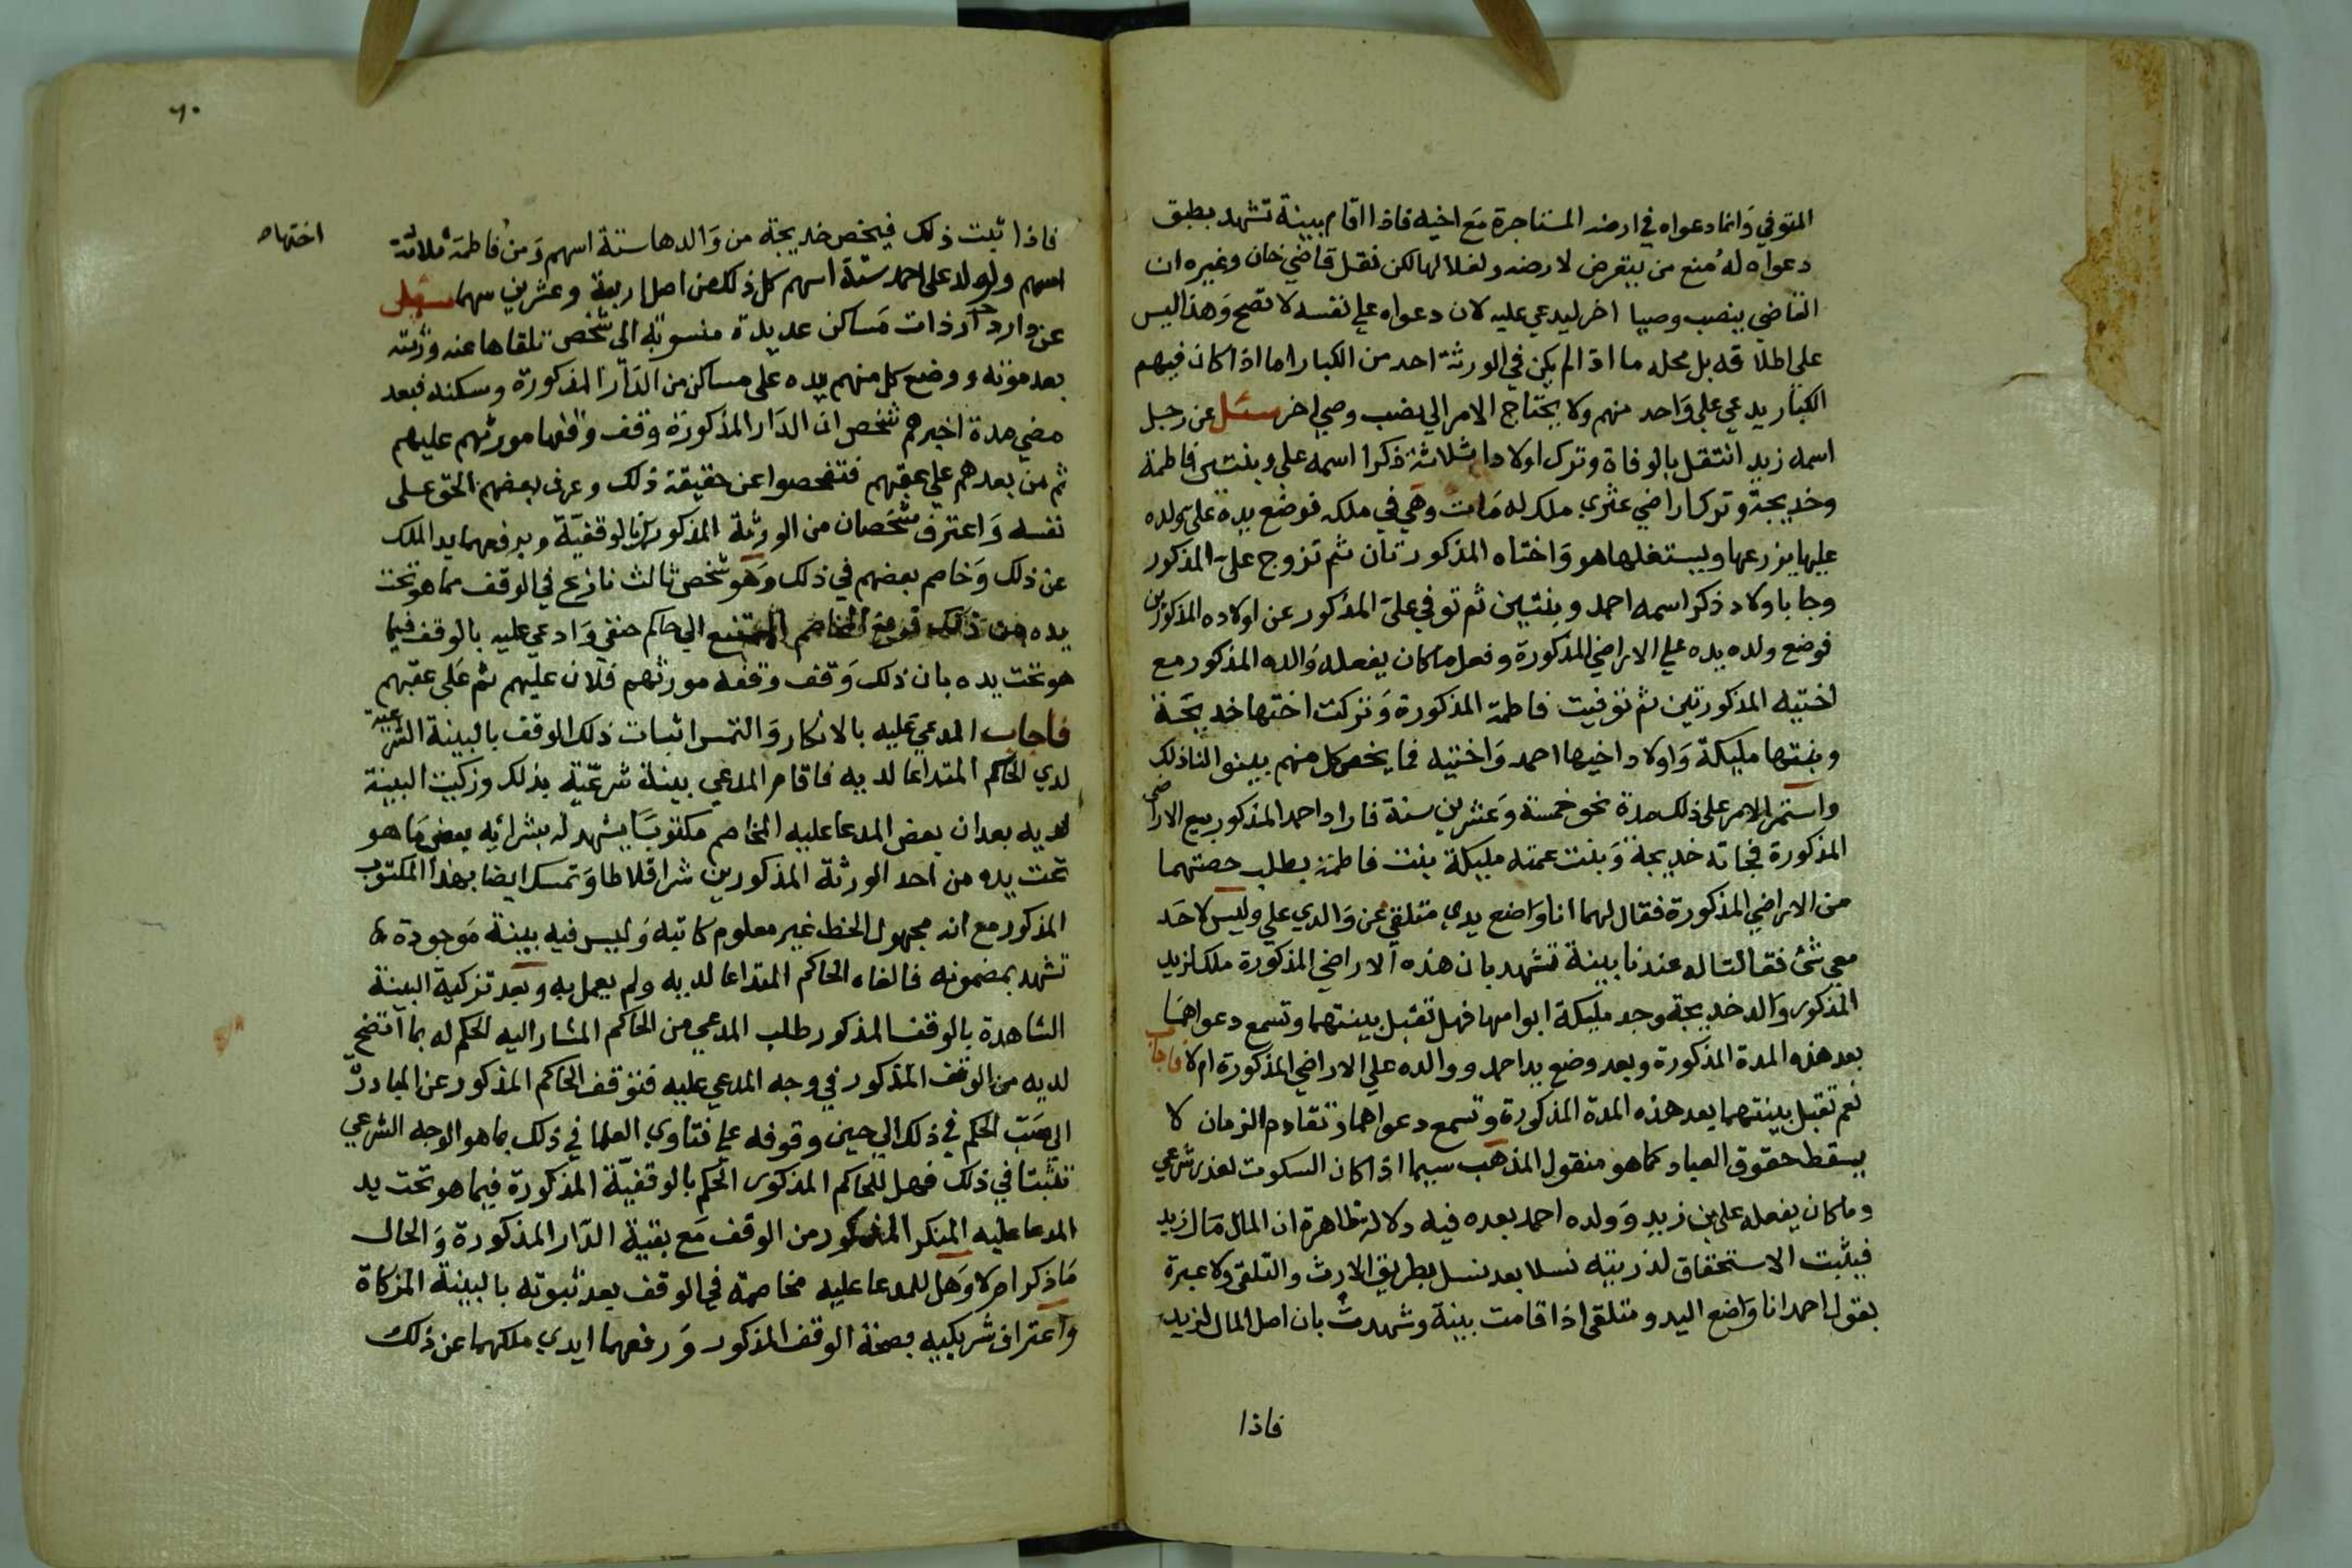 المتوفي وانما دعواه في ارضه المستاجرة مع اخيه فاذا اقام بينة تشهد بطبق
دعواه له منع من يتعرض لارضه ولفلالها لكن نقل قاضي خان وغيره ان
القاضي ينصب وصيا اخر ليدعي عليه لان دعواه علي نفسه لا تصح وهذا ليس
على اطلاقه بل محله ما اذا لم يكن في الورثة احد من الكبار اما اذا كان فيهم
الكبار يدعي على واحد منهم ولا يحتاج الامر الي نصب وصي اخر سئل عن رجل
اسمه زيد انتقل بالوفاة وترك اولادا ثلاثة ذكرا اسمه علي وبنتين فاطمة
وخديجة وترك اراضي عثري ملك له مات وهي في ملكه فوضع يده على ولده
عليها يزرعها ويستغلها هو واختاه المذكورتان ثم تزوج علي المذكور
وجا باولاد ذكر اسمه احمد وبنتين ثم توفي علي المذكور عن اولاده المذكورين
فوضع ولده يده علي الاراضي المذكورة وفعل ما كان يفعله والده المذكور مع
اختيه المذكورتين ثم توفيت فاطمة المذكورة وتركت اختها خديجة
وبنتها مليكة واولاد اخيها احمد واختيه فما يخص كل منهم بينوا لنا ذلك
واستمر الامر على ذلك مدة نحو خمسة وعشرين سنة فاراد احمد المذكور بيع الاراضي
المذكورة فجاته خديجة وبنت عمته مليكة بنت فاطمة بطلب حصتهما
من الاراضي المذكورة فقال لهما انا واضع يدي متلقي عن والدي علي وليس لاحد
معي شئ فقالتا له عندنا بينة تشهد بان هذه الاراضي المذكورة ملك لزيد
المذكور والد خديجة وجد مليكة ابو امها فهل تقبل بينتهما وتسمع دعواهما
بعد هذه المدة المذكورة وبعد وضع يد احمد ووالده علي الاراضي المذكورة ام لا فاجاب
نعم تقبل بينتهما بعد هذه المدة المذكورة وتسمع دعواهما وتقادم الزمان لا
يسقط حقوق العباد كما هو منقول المذهب سيما اذا كان السكوت لعذر شرعي
وما كان يفعله علي بن زيد وولده احمد بعده فيه دلالة ظاهرة ان المال مال زيد
فيثبت الاستحقاق لذريته نسلا بعد نسل بطريق الارث والتلقي ولا عبرة
بقول احمد انا واضع اليد ومتلقي اذا قامت بينة وشهدت بان اصل المال لزيد
فاذا
٦٠
فاذا ثبت ذلك فيخص خديجة من والدها ستة اسهم ومن فاطمة ثلاثة
اختها ه
اسهم ولولد علي احمد ستة اسهم كل ذلك من اصل اربعة وعشرين سهما سئل
عن دار ذات مساكن عديدة منسوبة الى شخص تلقاها عنه ورثته
بعد موته ووضع كل منهم يده على مساكن من الدار المذكورة وسكنه فبعد
مضي مدة اخبرهم شخص ان الدار المذكورة وقف وقفها مورثهم عليهم
ثم من بعدهم علي عقبهم فتفحصوا عن حقيقة ذلك وعرف بعضهم الحق على
نفسه واعترف شخصان من الورثة المذكورين بالوقفية وبرفعهما يد الملك
عن ذلك وخاصم بعضهم في ذلك وهو شخص ثالث نازع في الوقف مما هو تحت
يده من ذلك المخاصم الممتنع الي حاكم حنفي وادعي عليه بالوقف فيما
هو تحت يده بان ذلك وقف وقفه مورثهم فلان عليهم ثم على عقبهم
فاجاب المدعي عليه بالانكار والتمس اثبات ذلك الوقف بالبينة الشرعية
لدي الحاكم المتداعا لديه فاقام المدعي بينة شرعية بذلك وزكيت البينة
لديه بعد ان بعض المدعا عليه المخاصم مكتوبا يشهد له بشرائه بعض ما هو
تحت يده من احد الورثة المذكورين شرا قلاطا وتمسك ايضا بهذا المكتوب
المذكور مع انه مجهول الخط غير معلوم كاتبه وليس فيه بينة موجودة
تشهد بمضمونه فالغاه الحاكم المتداعا لديه ولم يعمل به وبعد تزكية البينة
الشاهدة بالوقف المذكور طلب المدعي من الحاكم المشار اليه الحكم له بما اتضح
لديه من الوقف المذكور في وجه المدعي عليه فتوقف الحاكم المذكور عن المبادرة
الي الحكم في ذلك الي حين وقوفه علي فتاوي العلما في ذلك بما هو الوجه الشرعي
تثبتا في ذلك فهل للحاكم المذكور الحكم بالوقفية المذكورة فيما هو تحت يد
المدعا عليه المنكر المذكور من الوقف مع بقية الدار المذكورة والحال
ما ذكر ام لا وهل للمدعا عليه مخاصمة في الوقف بعد ثبوته بالبينة المزكاة
واعتراف شريكيه بصحة الوقف المذكور ورفعهما ايدي ملكهما عن ذلك